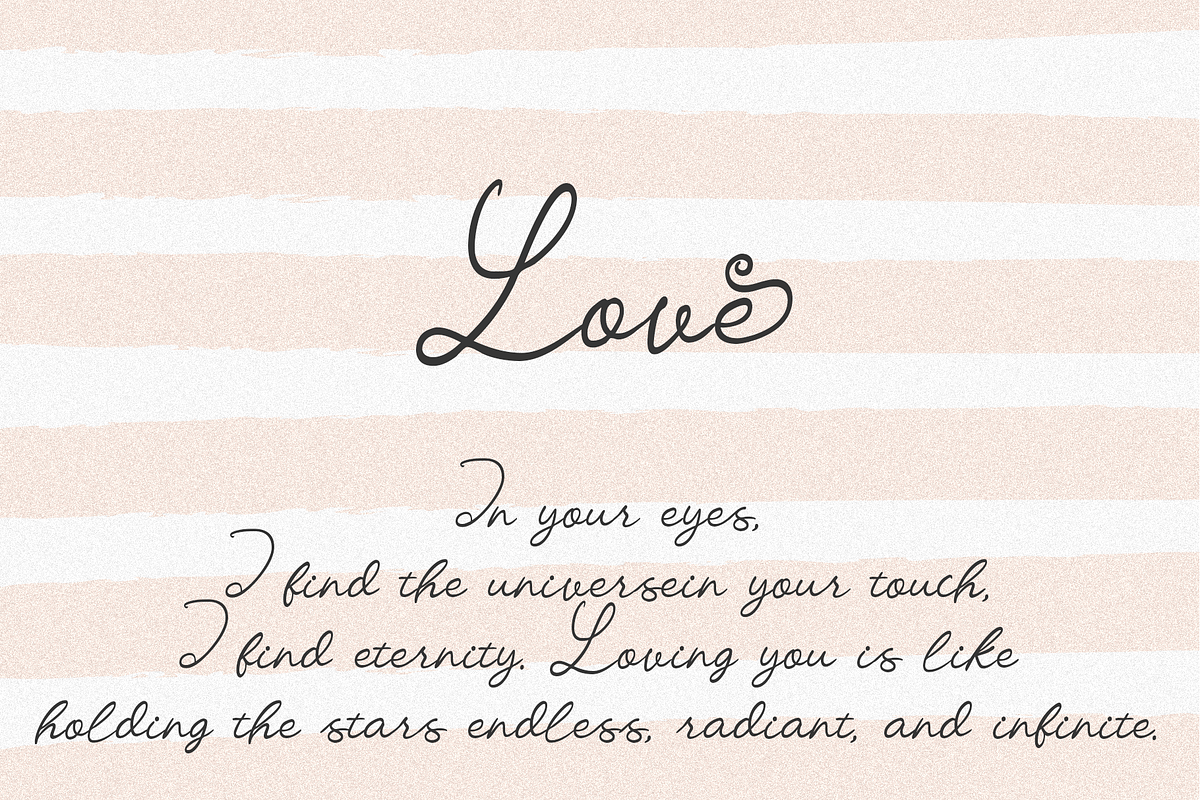 Love
In your eyes,
I find the universein your touch,
I find eternity. Loving you is like
holding the stars endless, radiant, and infinite.